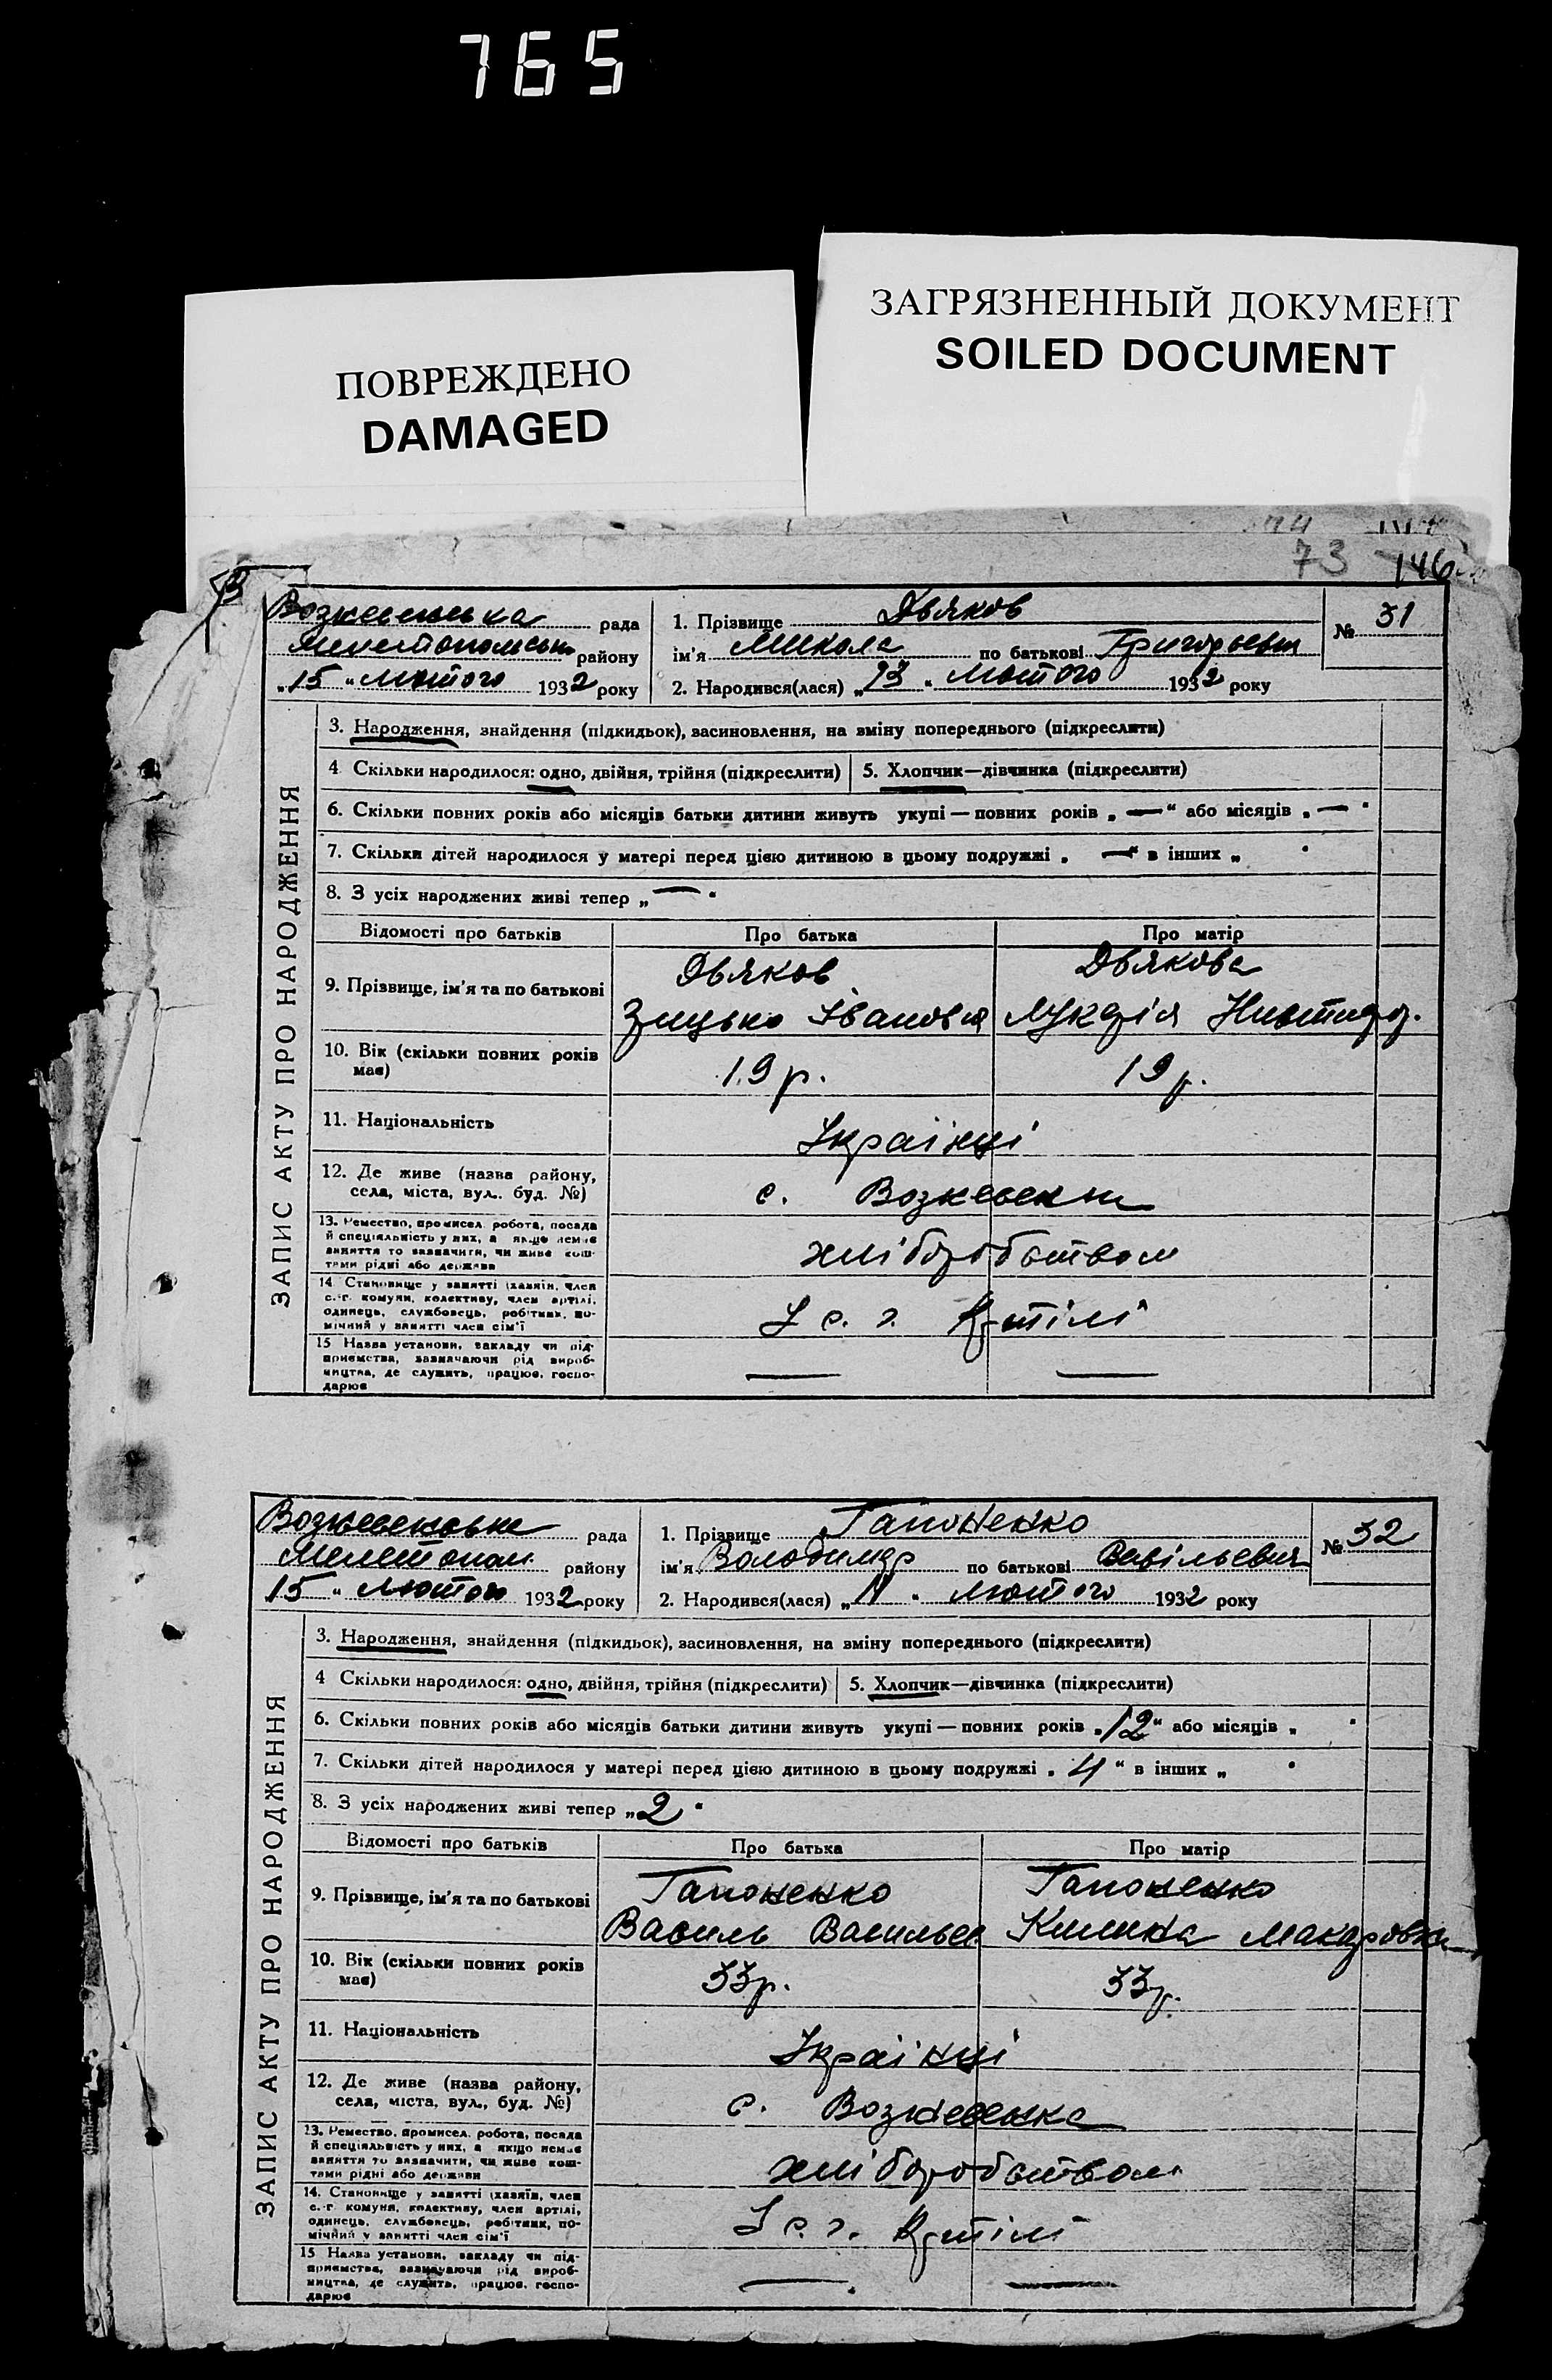 765
ПОВРЕЖДЕНО
DAMAGED
ЗАГРЯЗНЕННЫЙ ДОКУМЕНТ
SOILED DOCUMENT
73 146
ЗАПИС АКТУ ПРО НАРОДЖЕННЯ
рада
району
„15" лютого 1932 року
1. Прізвище Дьяков
ім'я Микола по батькові Григорьевич
2. Народився(лася) „13" лютого 1932 року
№ 31
3. Народження, знайдення (підкидьок), засиновлення, на зміну попереднього (підкреслити)
4 Скільки народилося: одно, двійня, трійня (підкреслити) 5. Хлопчик—дівчинка (підкреслити)
6. Скільки повних років або місяців батьки дитини живуть укупі — повних років „—" або місяців „—"
7. Скільки дітей народилося у матері перед цією дитиною в цьому подружжі „—" в інших „ "
8. З усіх народжених живі тепер „—"
Відомості про батьків Про батька Про матір
9. Прізвище, ім'я та по батькові Дьяков Дьякова
10. Вік (скільки повних років має) 19 р. 19 р.
11. Національність Українці
12. Де живе (назва району, села, міста, вул. буд. №) с.
13. Ремество, промисел, робота, посада
й спеціяльність у них, а якщо немає
заняття то зазначити, чи живе кош-
тами рідні або держави
хліборобством
14 Становище у занятті (хазяїн, член
с.-г. комуни, колективу, член артілі,
одинець, службовець, робітник, по-
мічний у занятті член сім'ї
У с. г. Артілі
15 Назва установи, закладу чи під-
приємства, зазначаючи рід вироб-
ництва, де служить, працює, госпо-
дарює
— —
ЗАПИС АКТУ ПРО НАРОДЖЕННЯ
рада
Мелетопол. району
15 " лютого 1932 року
1. Прізвище Гапоненко
ім'я Володимир по батькові
2. Народився(лася) „11" лютого 1932 року
№ 32
3. Народження, знайдення (підкидьок), засиновлення, на зміну попереднього (підкреслити)
4 Скільки народилося: одно, двійня, трійня (підкреслити) 5. Хлопчик—дівчинка (підкреслити)
6. Скільки повних років або місяців батьки дитини живуть укупі — повних років „12" або місяців „ "
7. Скільки дітей народилося у матері перед цією дитиною в цьому подружжі „4" в інших „ "
8. З усіх народжених живі тепер „2"
Відомості про батьків Про батька Про матір
9. Прізвище, ім'я та по батькові Гапоненко Гапоненко
Василь Макаровна
10. Вік (скільки повних років має) 33 р. 33 р.
11. Національність Українці
12. Де живе (назва району, села, міста, вул., буд. №) с. Вознесенка
13. Ремество, промисел, робота, посада
й спеціяльність у них, а якщо немає
заняття то зазначити, чи живе кош-
тами рідні або держави
хліборобством
14. Становище у занятті (хазяїн, член
с.-г. комуни, колективу, член артілі,
одинець, службовець, робітник, по-
мічний у занятті член сім'ї
У с. г. Артілі
15 Назва установи, закладу чи під-
приємства, зазначаючи рід вироб-
ництва, де служить, працює, госпо-
дарює
— —